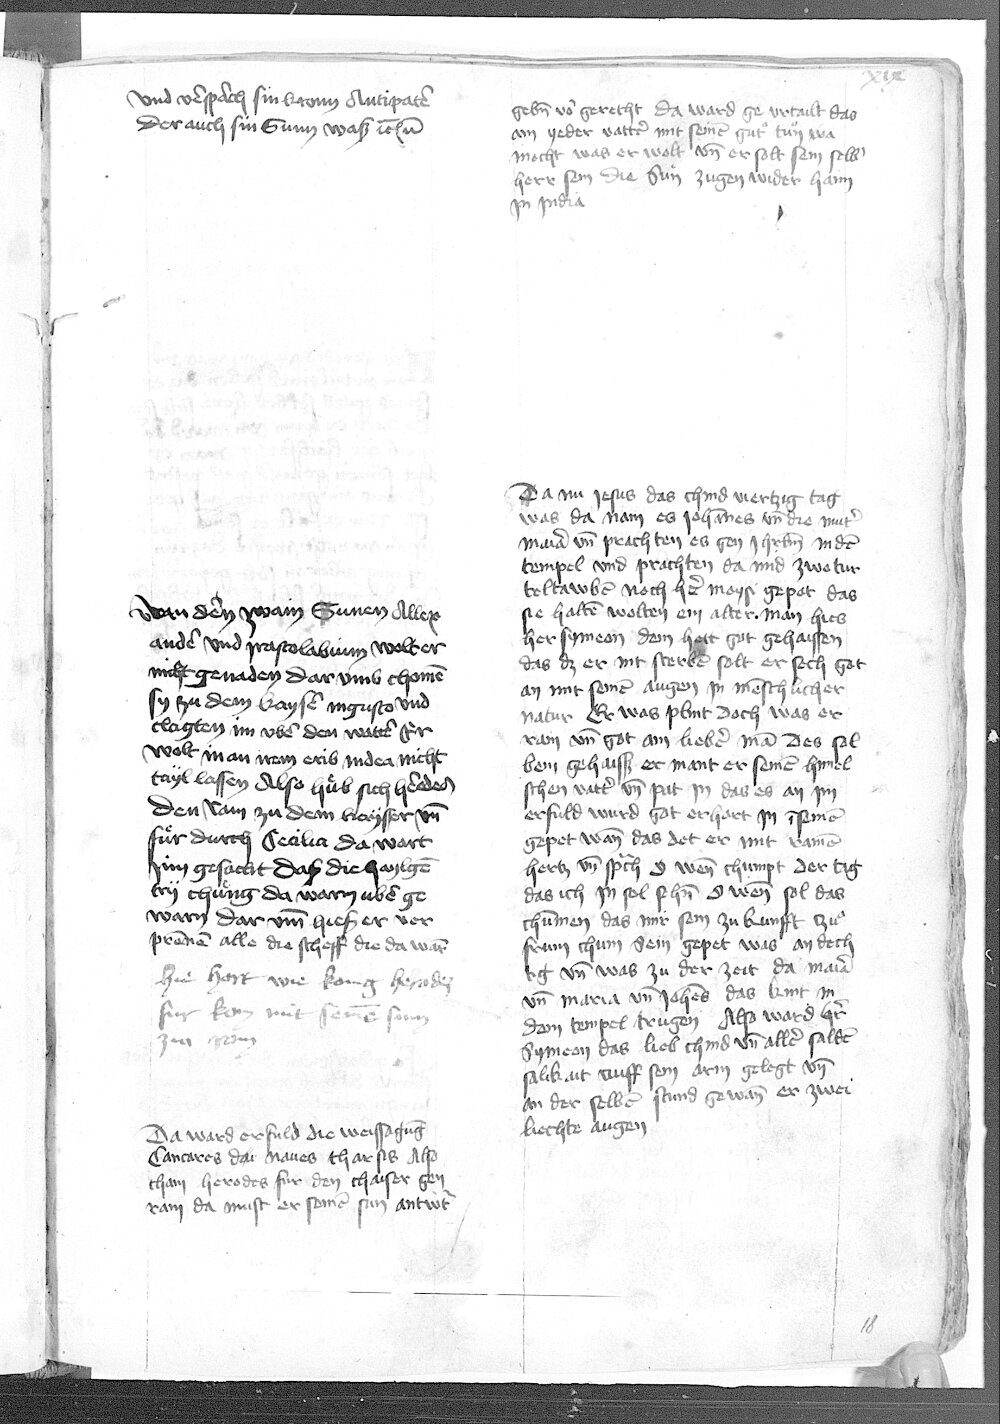 XIX
Und versprach sin kroun Antipater
der auch sin Sunn waß
Van den zwain Sunen Allex
ander und wolt er
nicht genaden dar umb chomen
sy zu dem kayser Augusto und
clagten im uber den vatter Er
wolt in an irem erib Judea nicht
tayl lassen Also hub sich herodes
den Ram zu dem kayser vn
fur durch Cecilia da wart
jm gesacht daß die heylige
trij chung da warn uber ge
warn dar um hieß er ver
prenen alle die scheff die da warn
hie hort wie konig herodes
fur kem mit seinem sunn
zu rom
Da ward erfuld die weissagug
naves tharsis Also
cham herodes fur den chaiser gen
ram da must er seine sun antwrt
gebn vo gerecht da ward ge urtailt das
ain yeder vatter mit seine gut tun wa
mocht was er wolt vn er solt sein selb
herr sein die Sun zugen wider haim
in India
Da nu Jesus das chind viertzig tag
was da nam es Johannes vn die muter
maria vn prachten es gen Jhrlm in de
tempel und prachten da mid zwo tur
teltawbe noch her moysi gepot das
sie halte wolten ein alter man hies
her symeon dem het got gehaissen
das dz er nit sterbe solt er sech got
an mit seine augen in menschlicher
natur Er was plint doch was er
rain vn got ain lieber man Des sel
ben gehaiß er mant er seine himel
schen vatter vn pat in das es an im
erfuld wurd got erhort in seine
gepet wan das det er mit raine
hertz vn sprach O wen chumpt der tag
das ich in sol sehn O wen sol das
chumen das mir sein zu kunfft zu
frum chum Sein gepet was andech
tig vn was zu der zeit da maria
vn maria vn Johes das kint in
dem tempel trugen Also ward her
Symeon das lieb chind vn aller selde
salikait uff sein arm gelegt vn
an der selbe stund gewan er zwei
liechte augen
18